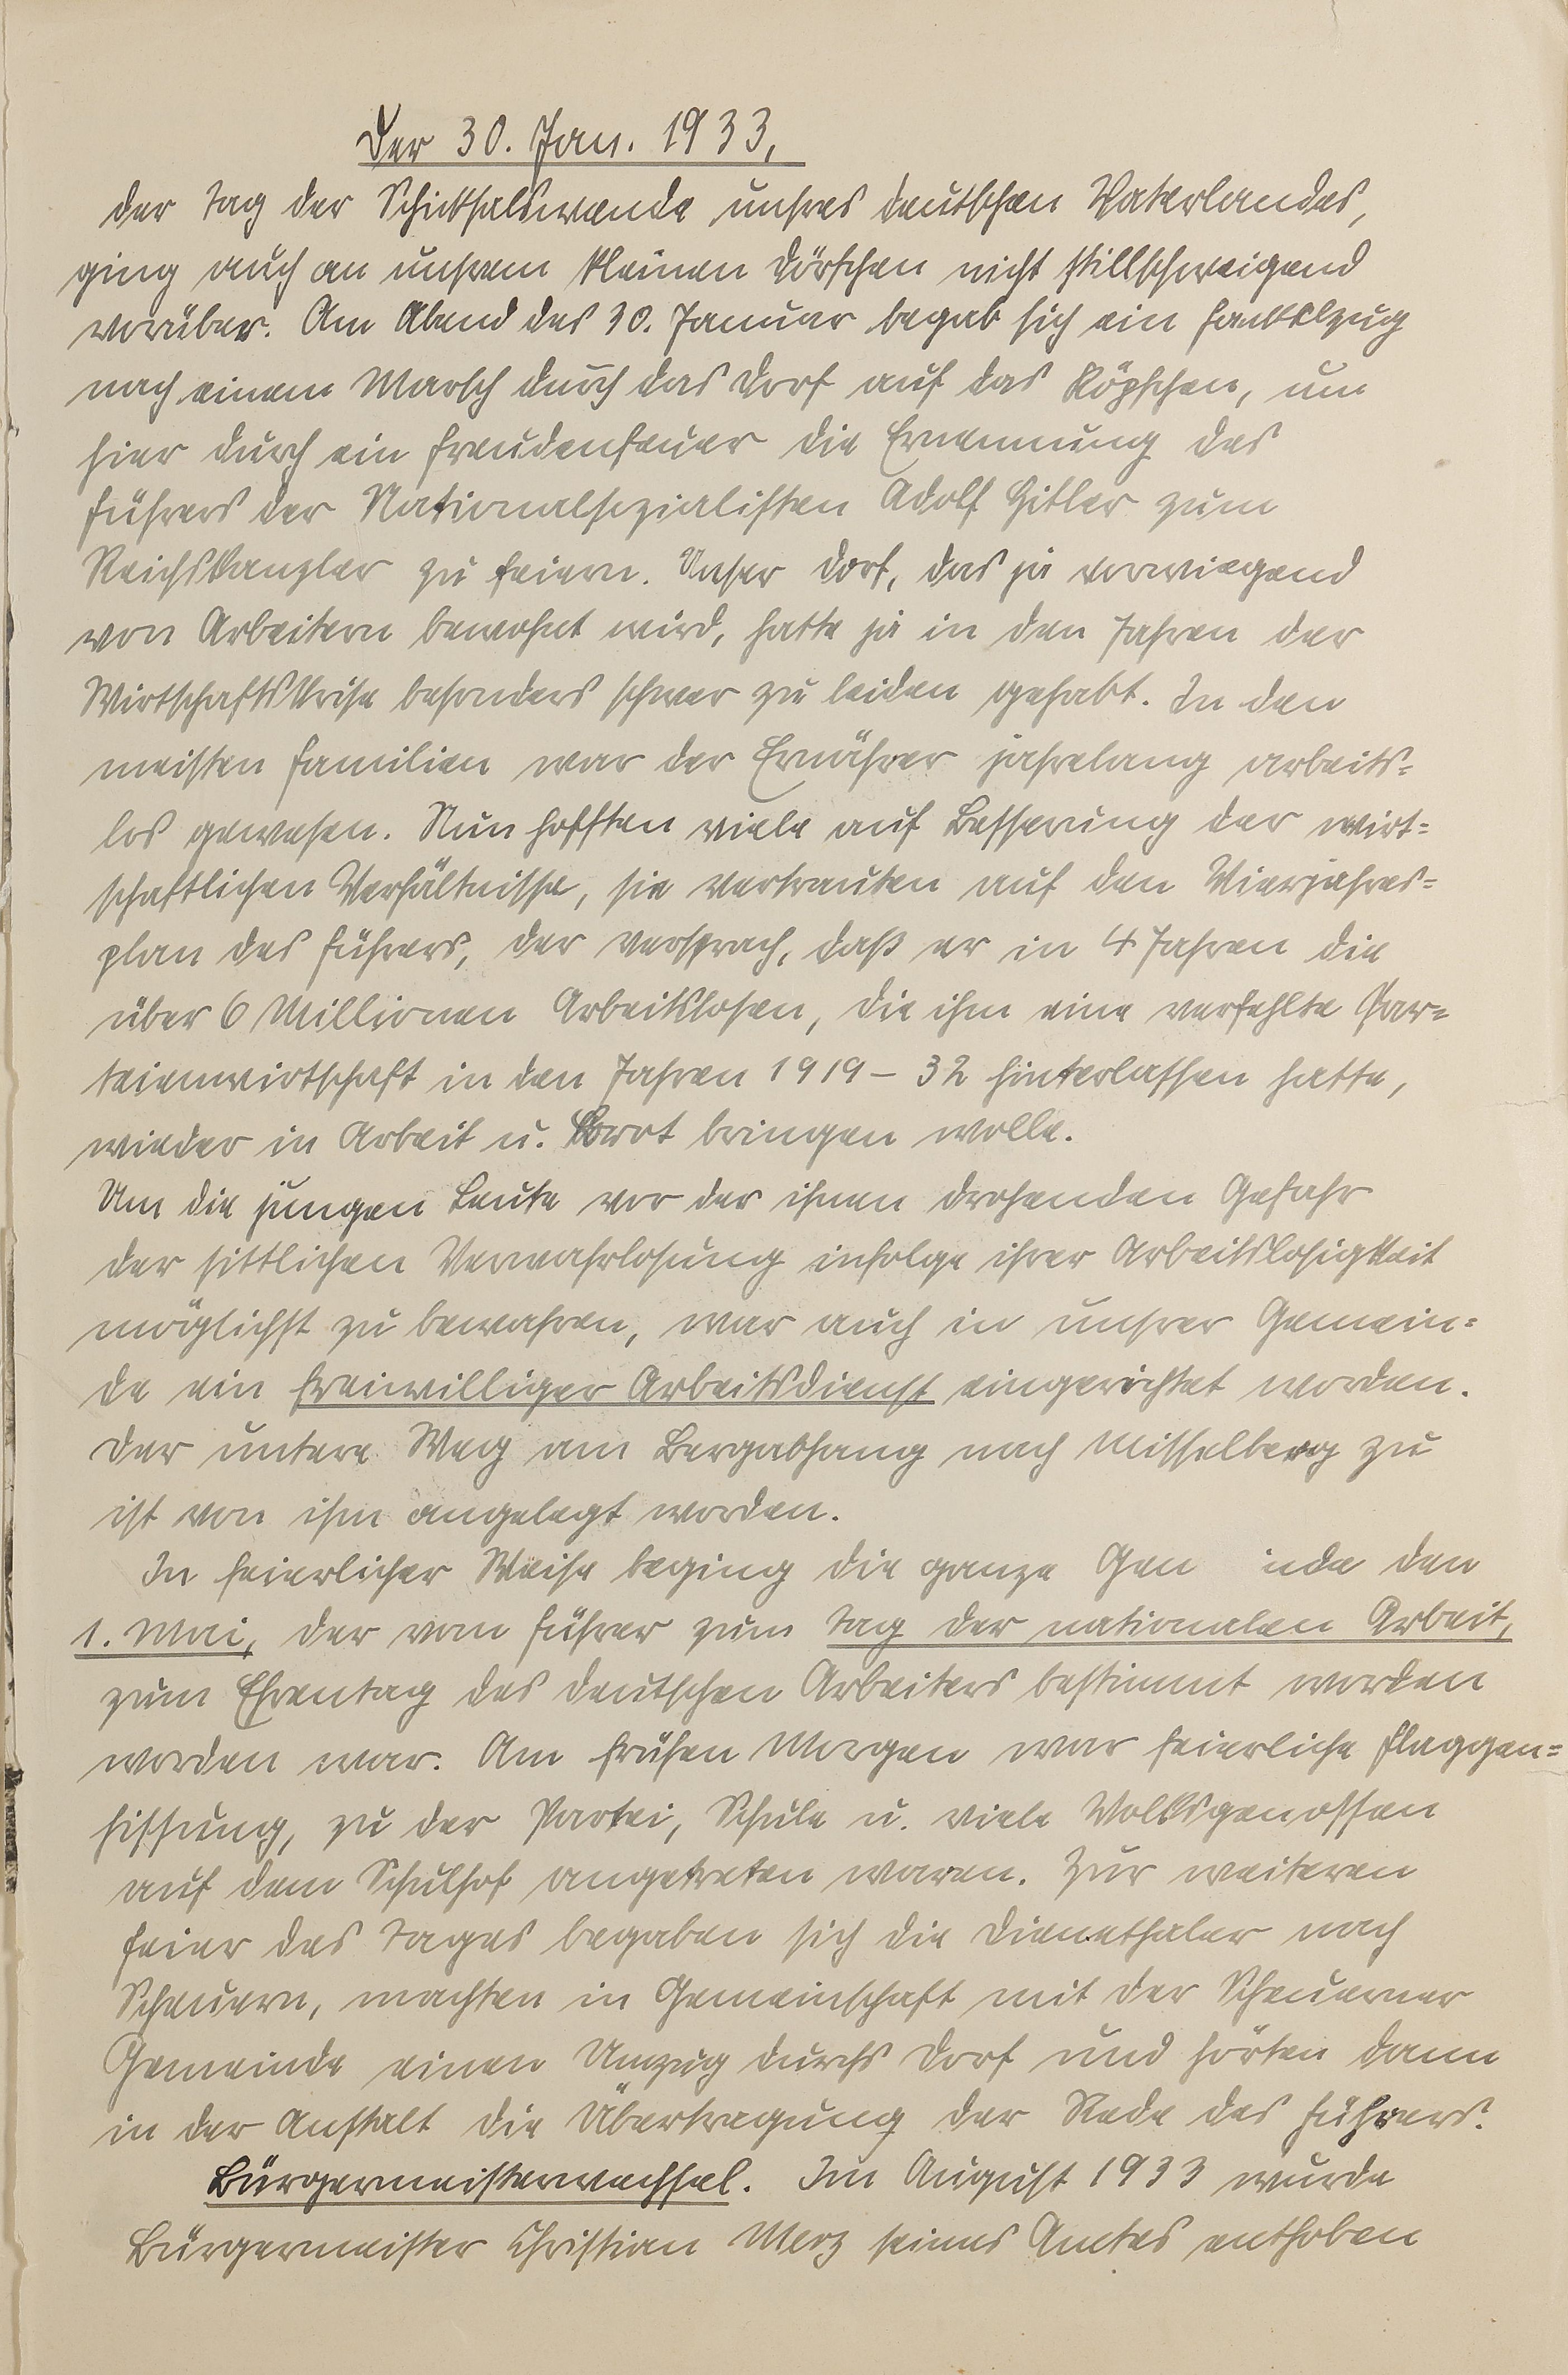 Der 30. Jan. 1933,
der Tag der Schicksalswende unsres deutschen Vaterlandes,
ging auch an unsrem kleinen Dörfchen nicht stillschweigend
vorüber. Am Abend des 30. Januar begab sich ein Fackelzug
nach einem Marsch durch das Dorf auf das Köpfchen, um
hier durch ein Freudenfeuer die Ernennung des
Führers der Nationalsozialisten Adolf Hitler zum
Reichskanzler zu feiern. Unser Dorf, das ja vorwiegend
von Arbeitern bewohnt wird, hatte ja in den Jahren der
Wirtschaftskrise besonders schwer zu leiden gehabt. In den
meisten Familien war der Ernährer jahrelang arbeits=
los gewesen. Nun hofften viele auf Besserung der wirt=
schaftlichen Verhältnisse, sie vertrauten auf den Vierjahres=
plan des Führers, der versprach, daß er in 4 Jahren die
über 6 Millionen Arbeitslosen, die ihm eine verfehlte Par=
teienwirtschaft in den Jahren 1919 – 32 hinterlassen hatte,
wieder in Arbeit u. Brot bringen wolle.
Um die jungen Leute vor der ihnen drohenden Gefahr
der sittlichen Verwahrlosung infolge ihrer Arbeitslosigkeit
möglichst zu bewahren, war auch in unsrer Gemein=
de ein freiwilliger Arbeitsdienst eingerichtet worden.
Der untere Weg am Bergabhang nach Misselberg zu
ist von ihm angelegt worden.
In feierlicher Weise beging die ganze Gem inde den
1. Mai, der vom Führer zum Tag der nationalen Arbeit,
zum Ehrentag des deutschen Arbeiters bestimmt worden
worden war. Am frühen Morgen war feierliche Flaggen=
hissung, zu der Partei, Schule u. viele Volksgenossen
auf dem Schulhof angetreten waren. Zur weiteren
Feier des Tages begaben sich die Dienethaler nach
Scheuern, machten in Gemeinschaft mit der Scheuerner
Gemeinde einen Umzug durchs Dorf und hörten dann
in der Anstalt die Übertragung der Rede des Führers.
Bürgermeisterwechsel. Im August 1933 wurde
Bürgermeister Christian Merz seines Amtes enthoben